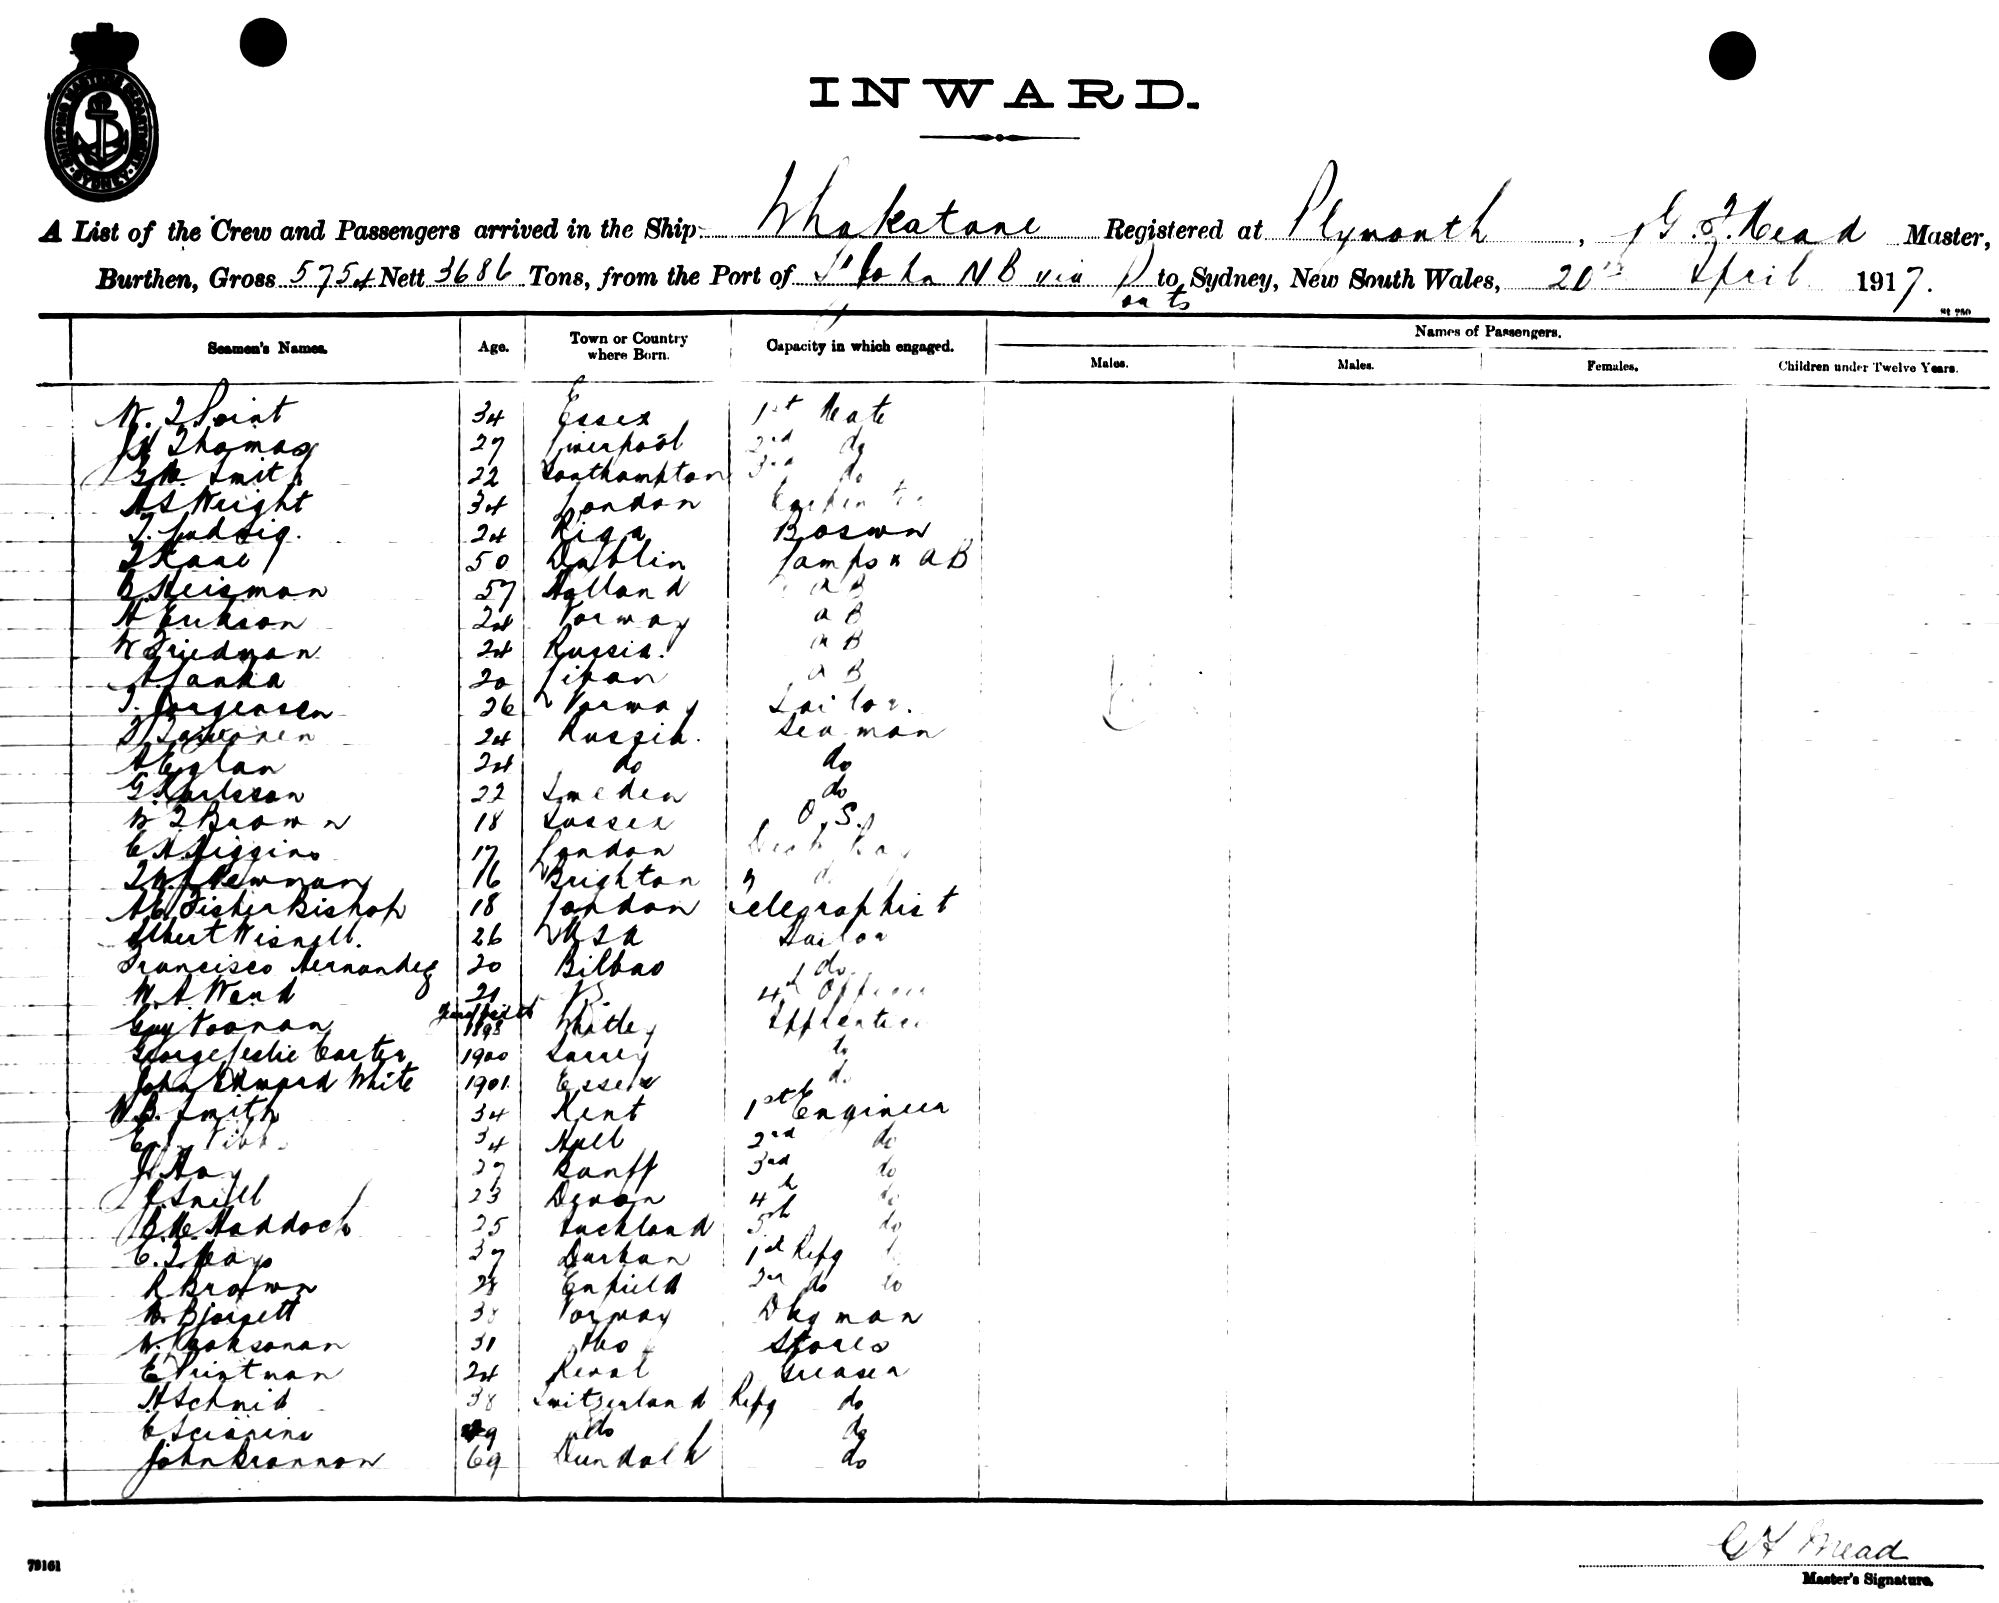 SHIPPING MASTERS DEPARTMENT SYDNEY
INWARD.
A List of the Crew and Passengers arrived in the Ship Whakatane Registered at Plymouth, G. F. Mead Master,
Burthen, Gross 5754 Nett 3686 Tons, from the Port of St John NB via Ports to Sydney, New South Wales, 20th April 1917.
St 750
Seamen's Names. Age. Town or Country where Born. Capacity in which engaged. Names of Passengers.
Males. Males. Females. Children under Twelve Years.
W. F Point 34 Essex 1st Mate
Thomas 27 Liverpool 2nd do
G W. Smith 22 Southampton 3rd do
A S Wright 34 London Carpenter
T. Ludsig. 24 Riga Boswn
T Kane 50 Dublin Lamps & AB
B Heisman 57 Holland AB
H Erikson 24 Norway AB
W Friedman 24 Russia. AB
A. Lanka 20 AB
T. Jorgensen 26 Norway Sailor.
24 Russia. Seaman
A Eglan 24 do do
G Karlsson 22 Sweden do
W F Brown 18 Sussex O.S.
C H Higgins 17 London Deck Boy
Newman 16 Brighton " d
A C Fisher Bishop 18 London Telegraphist
Albert Wisnell. 26 USA Sailor
Francisco Hernandez 20 Bilbao do.
W. A Wend 21 4th Officer
Guy Noonan 1898 Whitley Apprentice
George Leslie Carter 1900 Surrey do
John Edward White 1901. Essex do
W. B. Smith 34 Kent 1st Engineer
34 Hull 2nd do
J. Hay 27 Banff 3rd do
J. Snell 23 Devon 4th do
Haddock 25 Auckland 5th do
C. F Mays 37 Durban 1st Refg
R Brown 28 Enfield 2nd do do
Bjorsett 38 Norway Dkyman
31 do Stores
E Printman 24 Reval Greaser
H Schmid 38 Switzerland Refg do
C Sciarini 49 do do
John Brannon 69 Dundalk do
G F Mead
79161 Master's Signature.